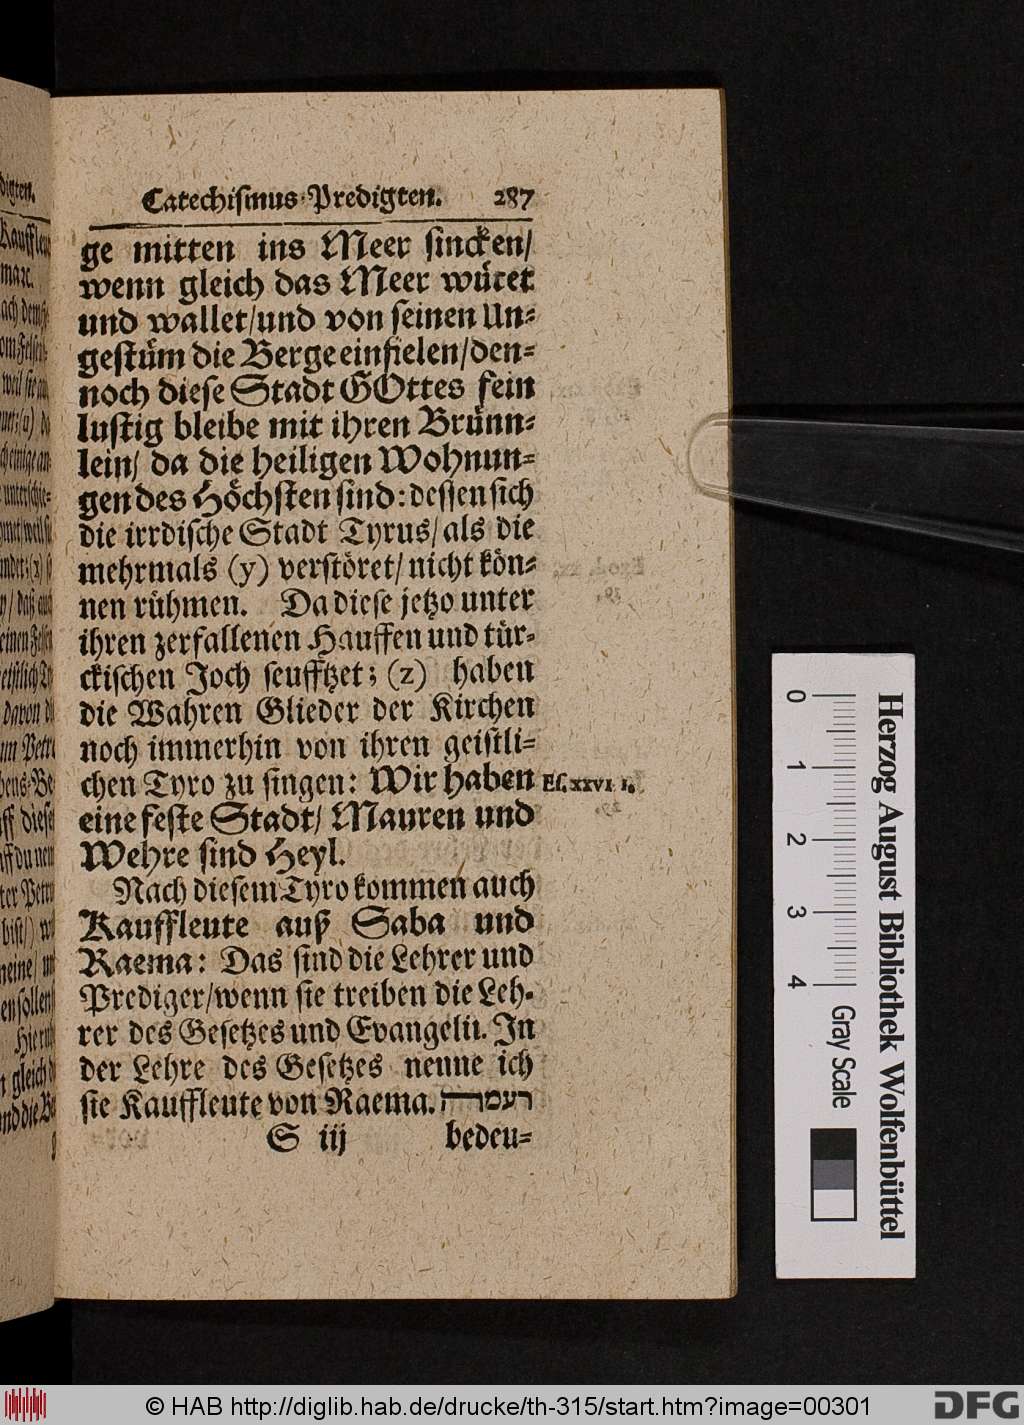 Catechismus-Predigten. 287
ge mitten ins Meer sincken/
wenn gleich das Meer wütet
und wallet/und von seinen Un-
gestüm die Berge einfielen/den-
noch diese Stadt GOttes fein
lustig bleibe mit ihren Brünn-
lein/ da die heiligen Wohnun-
gen des Höchsten sind: dessen sich
die irrdische Stadt Tyrus/ als die
mehrmals (y) verstöret/ nicht kön-
nen rühmen. Da diese jetzo unter
ihren zerfallenen Hauffen und tür-
ckischen Joch seufftzet; (z) haben
die Wahren Glieder der Kirchen
noch immerhin von ihren geistli-
chen Tyro zu singen: Wir haben
Es. XXVI 1.
eine feste Stadt/ Mauren und
Wehre sind Heyl.
Nach diesem Tyro kommen auch
Kauffleute auß Saba und
Raema: Das sind die Lehrer und
Prediger/wenn sie treiben die Leh-
rer des Gesetzes und Evangelii. In
der Lehre des Gesetzes nenne ich
sie Kauffleute von Raema. רעמה
S iij bedeu-
0 1 2 3 4
Gray Scale
Herzog August Bibliothek Wolfenbüttel
© HAB http://diglib.hab.de/drucke/th-315/start.htm?image=00301
DFG